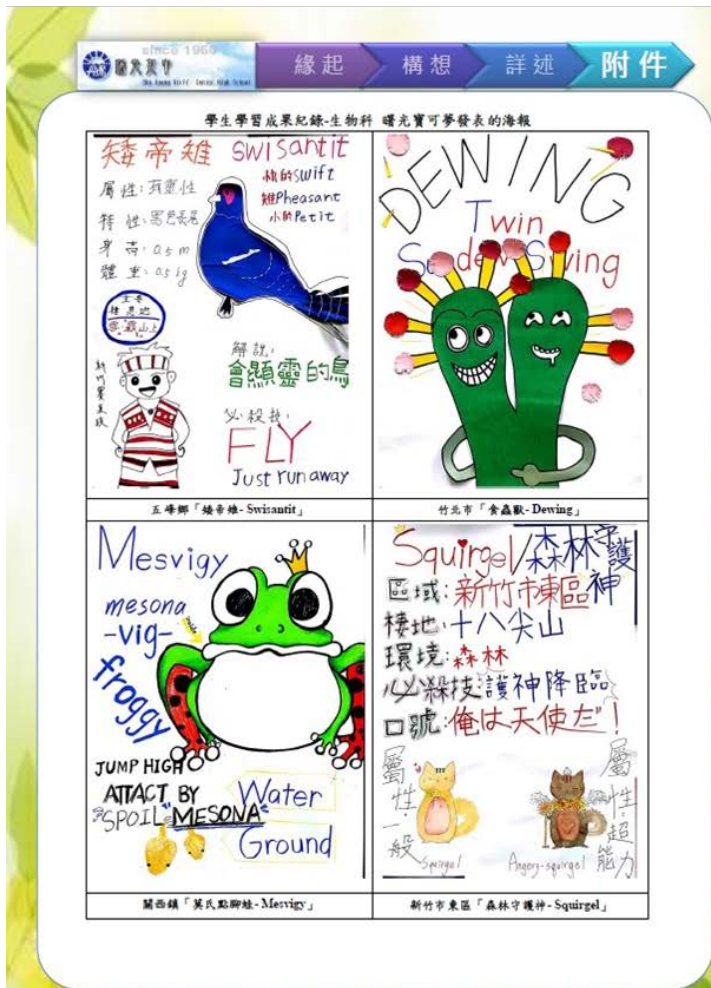 since 1960
曙光女中
緣起
構想
詳述
附件
學生學習成果紀錄-生物科 曙光寶可夢發表的海報
矮帝雉
swisantit
快的swift
雉Pheasant
小的Petit
屬性:有靈性
特性:黑色長尾
身高:0.5m
體重:0.5kg
主要
棲息地
雪霸山上
新竹賽夏族
解說:
會顯靈的鳥
必殺技:
FLY
Just run away
五峰鄉「矮帝雉- Swisantit」
DEWING
Twin
竹北市「食蟲獸- Dewing」
Mesvigy
mesona
-vig-
froggy
JUMP HIGH
ATTACT BY
"SPOIL MESONA"
Water
Ground
關西鎮「莫氏點腳蛙- Mesvigy」
Squirgel/森林守護神
區域:新竹市東區
棲地:十八尖山
環境:森林
必殺技:護神降臨
口號:俺は天使だ!
屬性:一般
Squirgel
Angery-squirgel
屬性:超能力
新竹市東區「森林守護神- Squirgel」